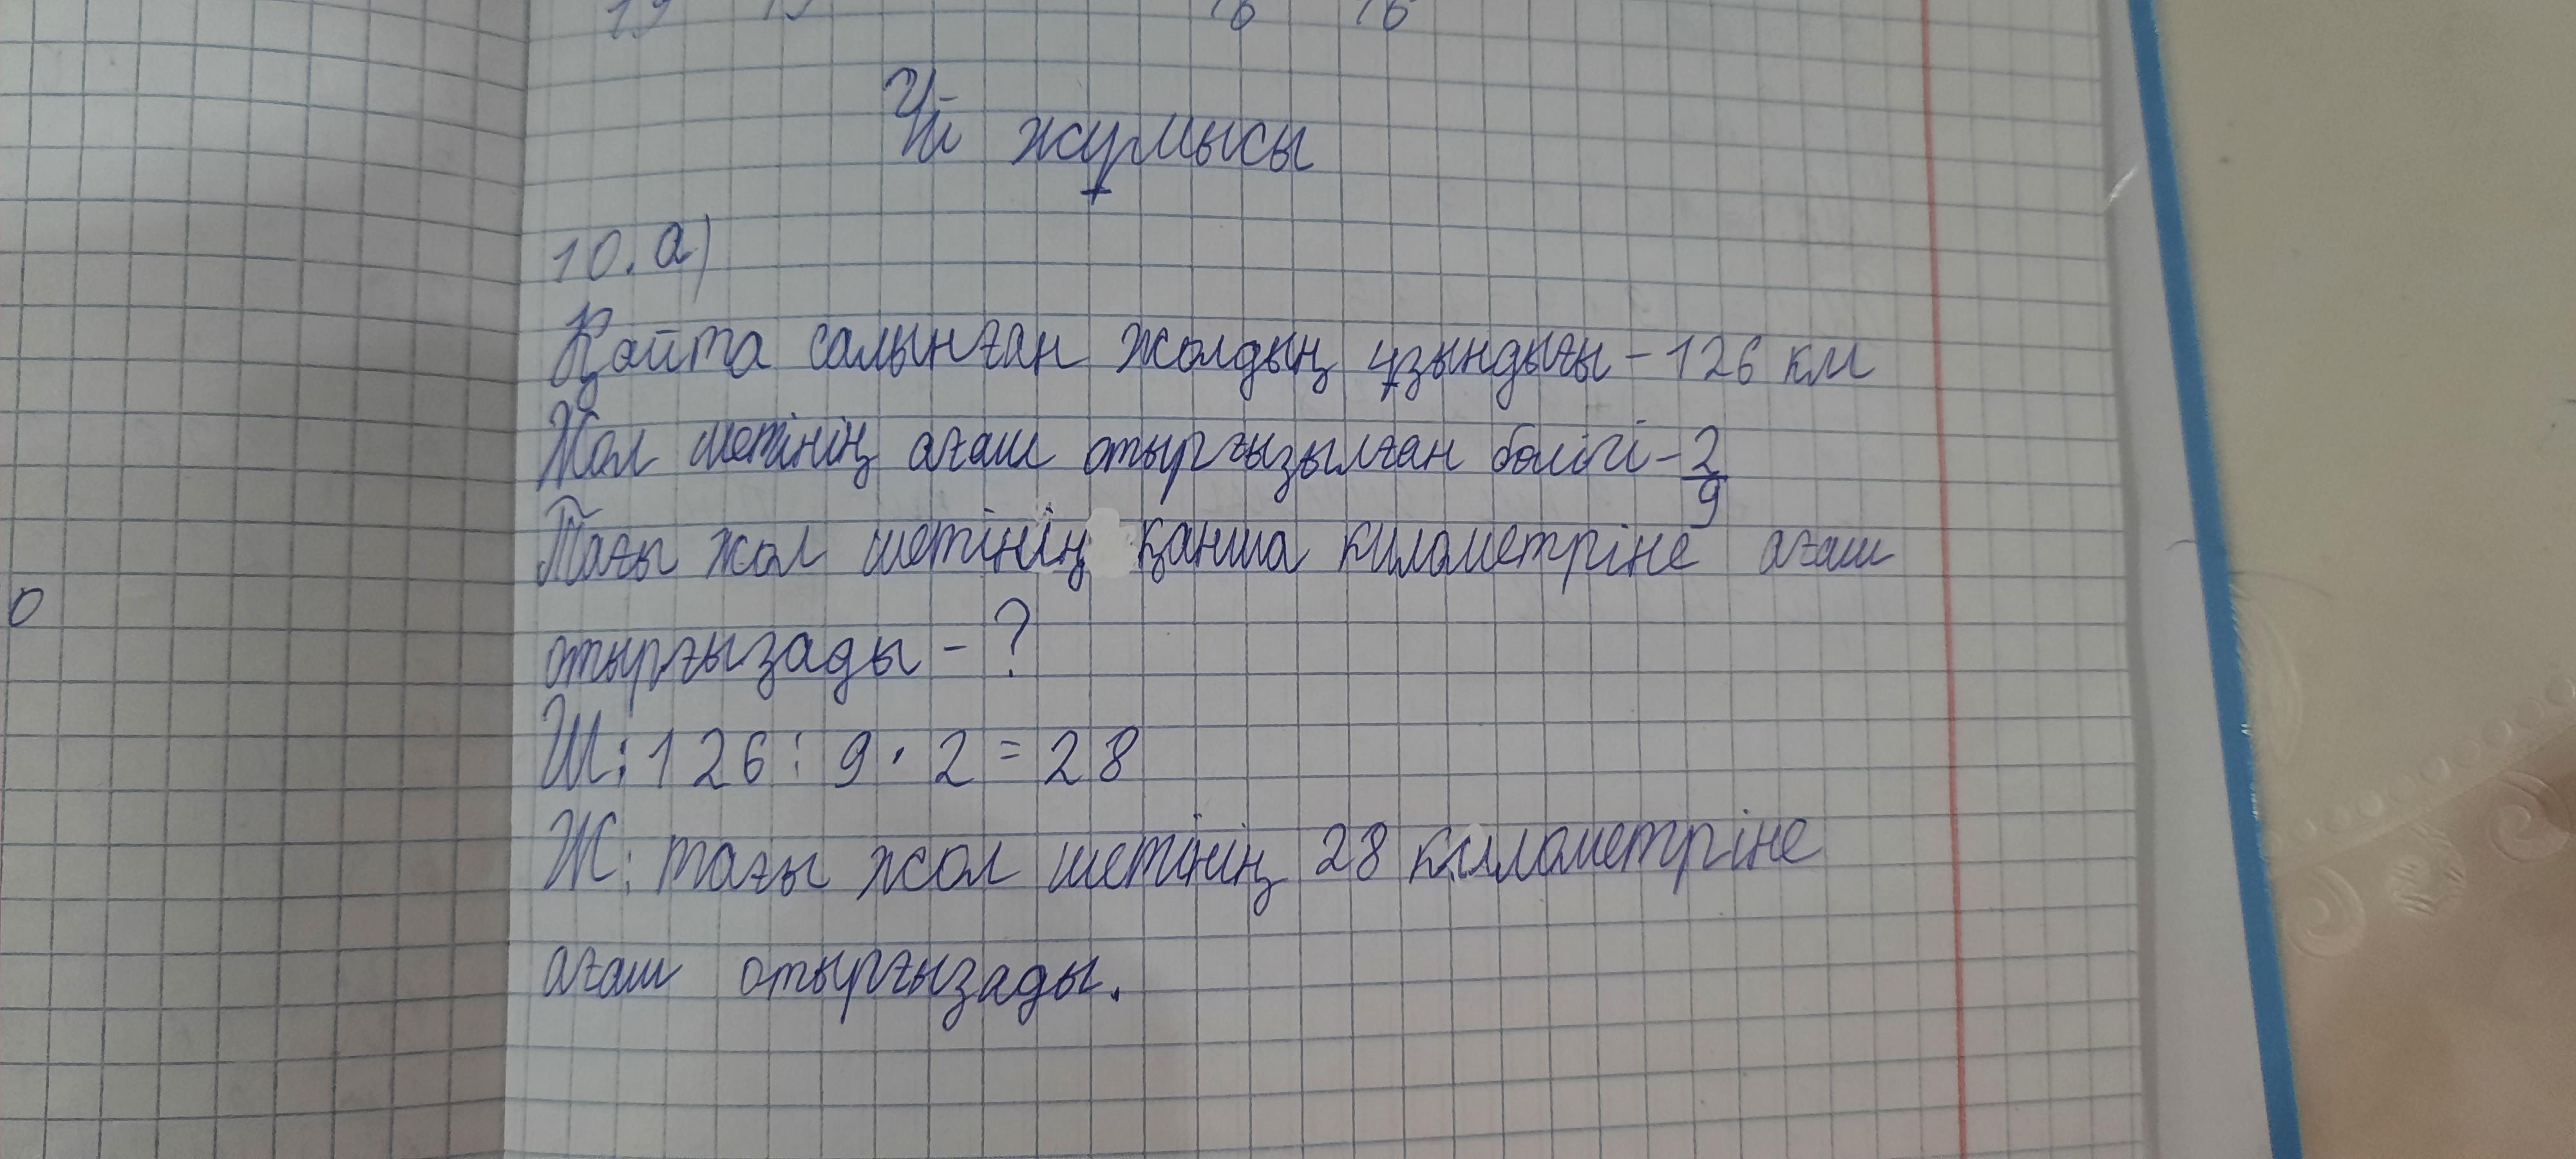 Үй жұмысы
10. а)
Қайта салынған жолдың ұзындығы - 126 км
Жол шетінің ағаш отырғызылған бөлігі - 2/9
Тағы жол шетінің қанша километріне ағаш
отырғызады - ?
Ш: 126 : 9 · 2 = 28
Ж: тағы жол шетінің 28 километріне
ағаш отырғызады.
0